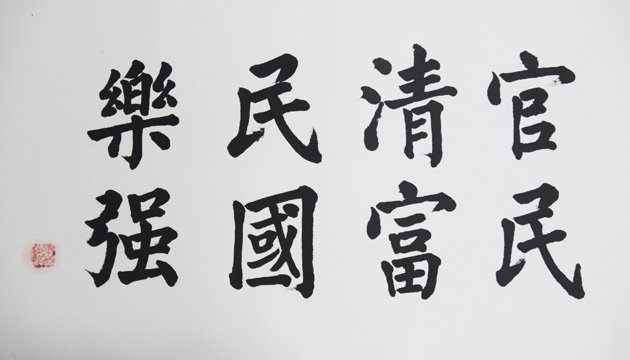 官清民樂
民富國强